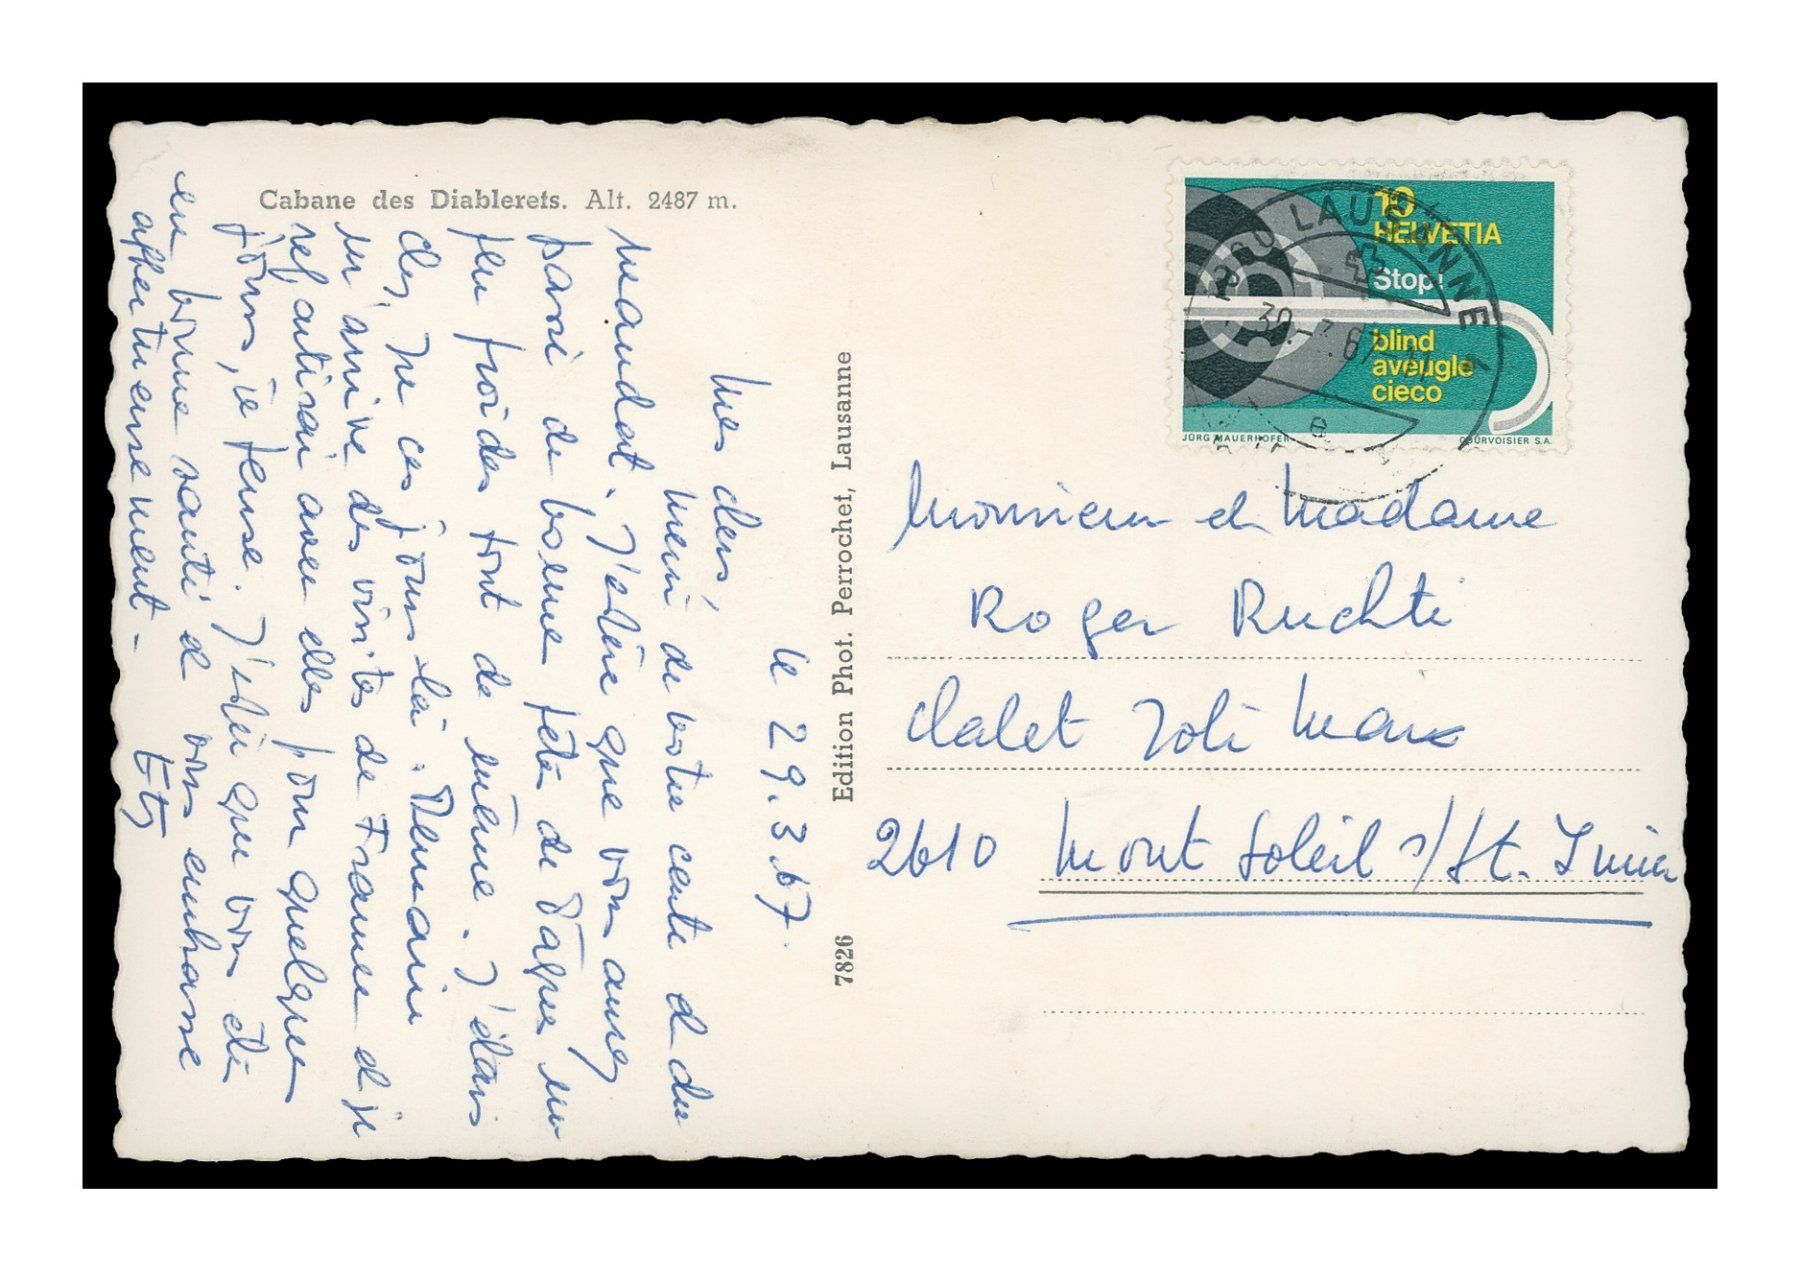 Cabane des Diablerets. Alt. 2487 m.
le 29.3.67.
Mes chers,
Merci de votre carte et du
mandat. J'espère que vous aurez
passé de bonne fête de Pâques un
peu froides tout de même. J'étais
chez ces jours-là. Demain
m'arrive des visites de France et je
repartirai avec elles pour quelques
jours, je pense. J'espère que vous êtes
en bonne santé et vous embrasse
affectueusement -
Edition Phot. Perrochet, Lausanne
7826
10
HELVETIA
Stop!
blind
aveugle
cieco
JÖRG MAUERHOFER
COURVOISIER S.A.
LAUSANNE 1
30.-3.67
e
Monsieur et Madame
Roger Ruchti
Chalet Joli Mais
2610 Mont Soleil s/St. Imier